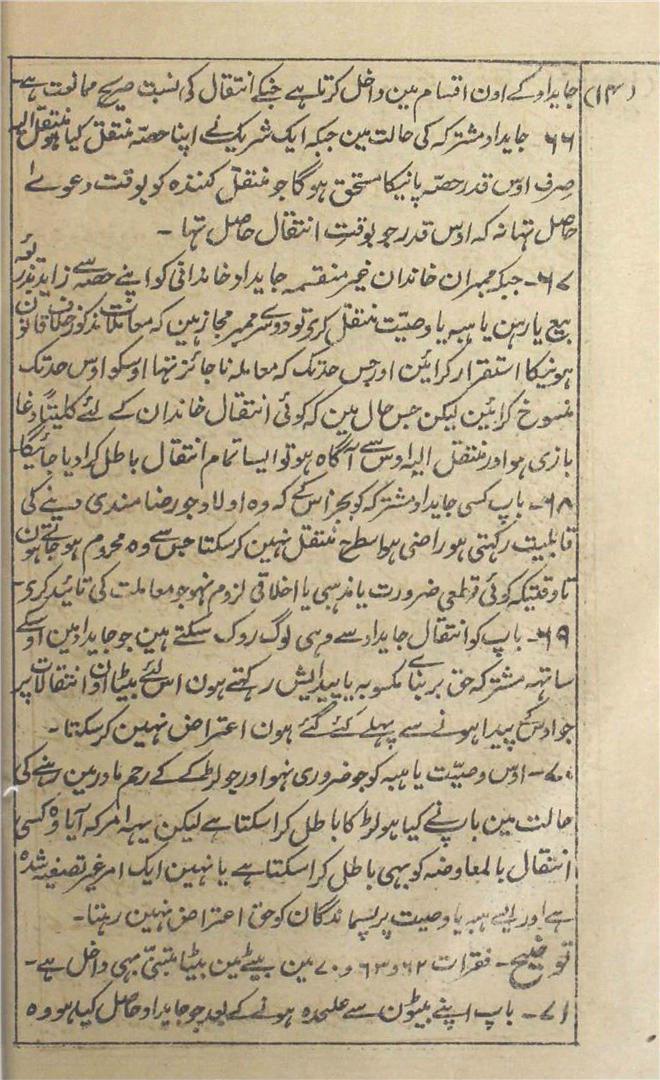 (۱۴) جایداد کے اون اقسام مین داخل کرتا ہے جنکے انتقال کی نسبت صریح ممانعت ہے۔
۶۶ جایداد مشترکہ کی حالت مین جبکہ ایک شریک نے اپنا حصّہ منتقل کیا ہو منتقل الیہ
صرف اوس قدر حصّہ پانیکا مستحق ہوگا جو منتقل کنندہ کو بوقت دعوے
حاصل تہا نہ کہ اوس قدر جو بوقتِ انتقال حاصل تہا ۔
۶۷۔ جبکہ ممبران خاندان غیر منقسمہ جایداد خاندانی کو اپنے حصہ سے زاید بذریعہ
بیع یا رہن یا ہبہ یا وصیّت منتقل کرے تو دوسرے ممبر مجاز ہین کہ معاملات مذکور خلاف قانون
ہونیکا استقرار کرائین اور جس حدتک کہ معاملہ ناجائز تہا اوسکو اوس حدتک
منسوخ کرائین لیکن جس حال مین کہ کوئی انتقال خاندان کے لئے کلیتاً دغا
بازی ہو اور منتقل الیہ اوس سے آگاہ ہو تو ایسا تمام انتقال باطل کرا دیا جائیگا۔
۶۸۔ باپ کسی جایداد مشترکہ کو بجز اس کے کہ وہ اولاد جو رضامندی دینے کی
قابلیت رکہتی ہو راضی ہو اسطح منتقل نہین کرسکتا جس سے وہ محروم ہو جاتے ہون
تاوقتیکہ کوئی قطعی ضرورت یا مذہبی یا اخلاقی لزوم نہو جو معاملت کی تائید کرے۔
۶۹۔ باپ کو انتقال جایداد سے وہی لوگ روک سکتے ہین جو جایداد مین اوسکے
ساتہہ مشترکہ حق بربنائے مکسوبہ یا پیدایش رکہتے ہون اس لئے بیٹا اون انتقالات پر
جو اوس کے پیدا ہونے سے پہلے کئے گئے ہون اعتراض نہین کرسکتا ۔
۷۰۔ اوس وصیّت یا ہبہ کو جو ضروری نہو اور جو لڑکے کے رحم مادر مین رہنے کی
حالت مین باپ نے کیا ہو لڑکا باطل کرا سکتا ہے لیکن یہہ امر کہ آیا وہ کسی
انتقال بالمعاوضہ کو بہی باطل کرا سکتا ہے یا نہین ایک امر غیر تصفیہ شدہ
ہے اور ایسے ہبہ یا وصیت پر پسماندگان کو حق اعتراض نہین رہتا۔
توضیح۔ فقرات ۶۲ و ۶۳ و ۷۰ مین بیٹے مین بیٹا متبنّیٰ بہی داخل ہے۔
۷۱۔ باپ اپنے بیٹون سے علیحدہ ہونے کے بعد جو جایداد حاصل کیا ہو وہ